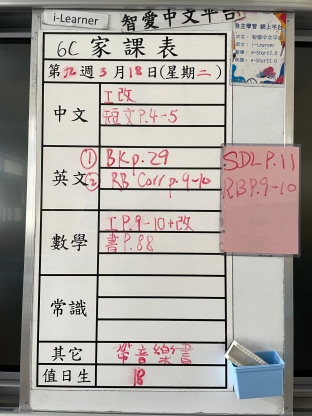 i-Learner
智愛中文平台
自主學習 網上平台
中文：智愛中文平台
英文：i-Learner
數學：e-Smart2.0
常識：e-Smart2.0
6C 家課表
第九週3月18日(星期二)
中文
工改
短文P.4-5
英文
① BK p.29
② RB Corr p.9-10
SDL P.11
RB P.9-10
數學
工P.9-10+改
書P.88
常識
其它
帶音樂書
值日生
18